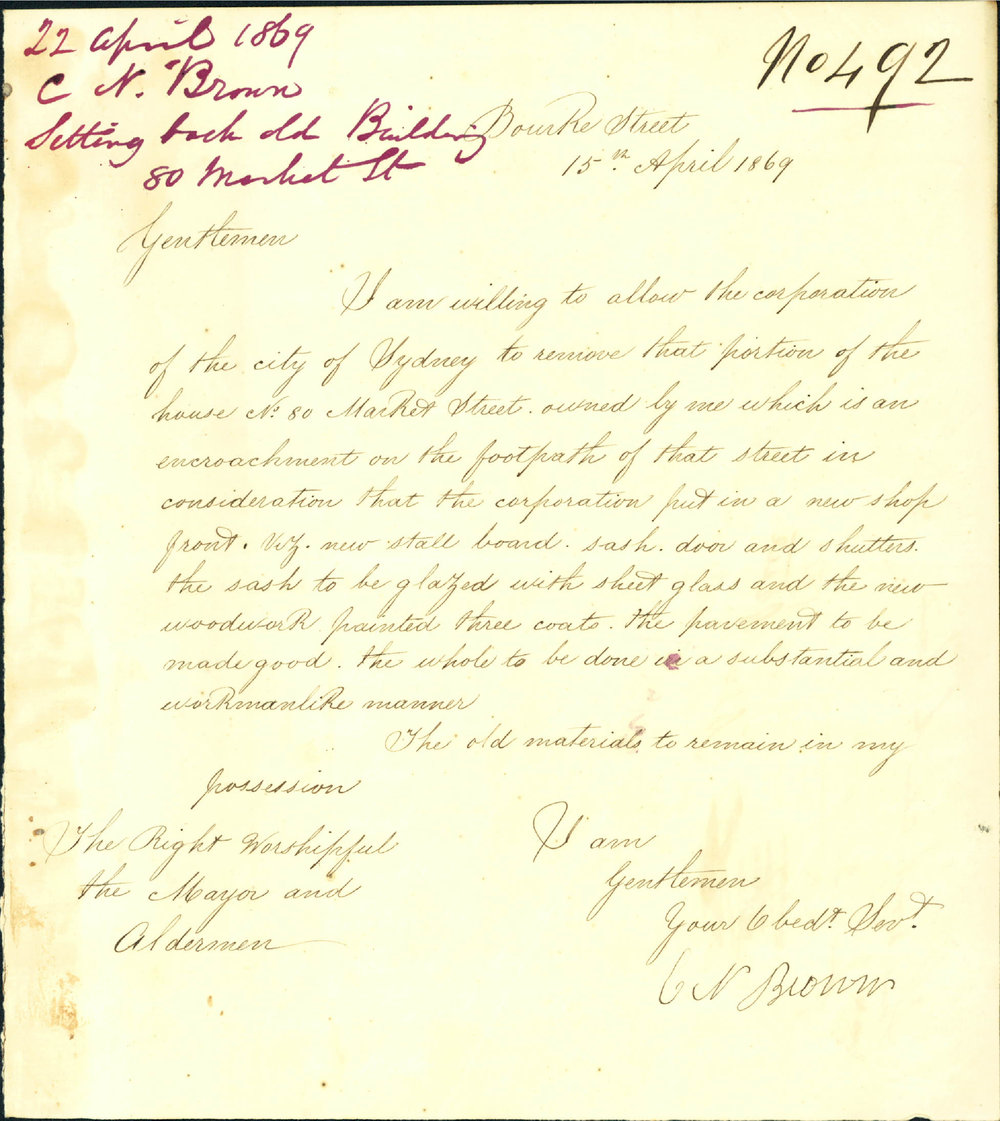 22 April 1869
C N. Brown
Setting back old Building
80 Market St
No 492
Bourke Street
15th April 1869
Gentlemen
I am willing to allow the corporation
of the city of Sydney to remove that portion of the
house No. 80 Market Street. owned by me which is an
encroachment on the footpath of that street in
consideration that the corporation put in a new shop
front. Viz. new stall board. sash. door and shutters.
the sash to be glazed with sheet glass and the new
woodwork painted three coats. the pavement to be
made good. the whole to be done in a substantial and
workmanlike manner
The old materials to remain in my
possession
The Right Worshipful
the Mayor and
Aldermen
I am
Gentlemen
Your Obedt. Servt.
C N Brown